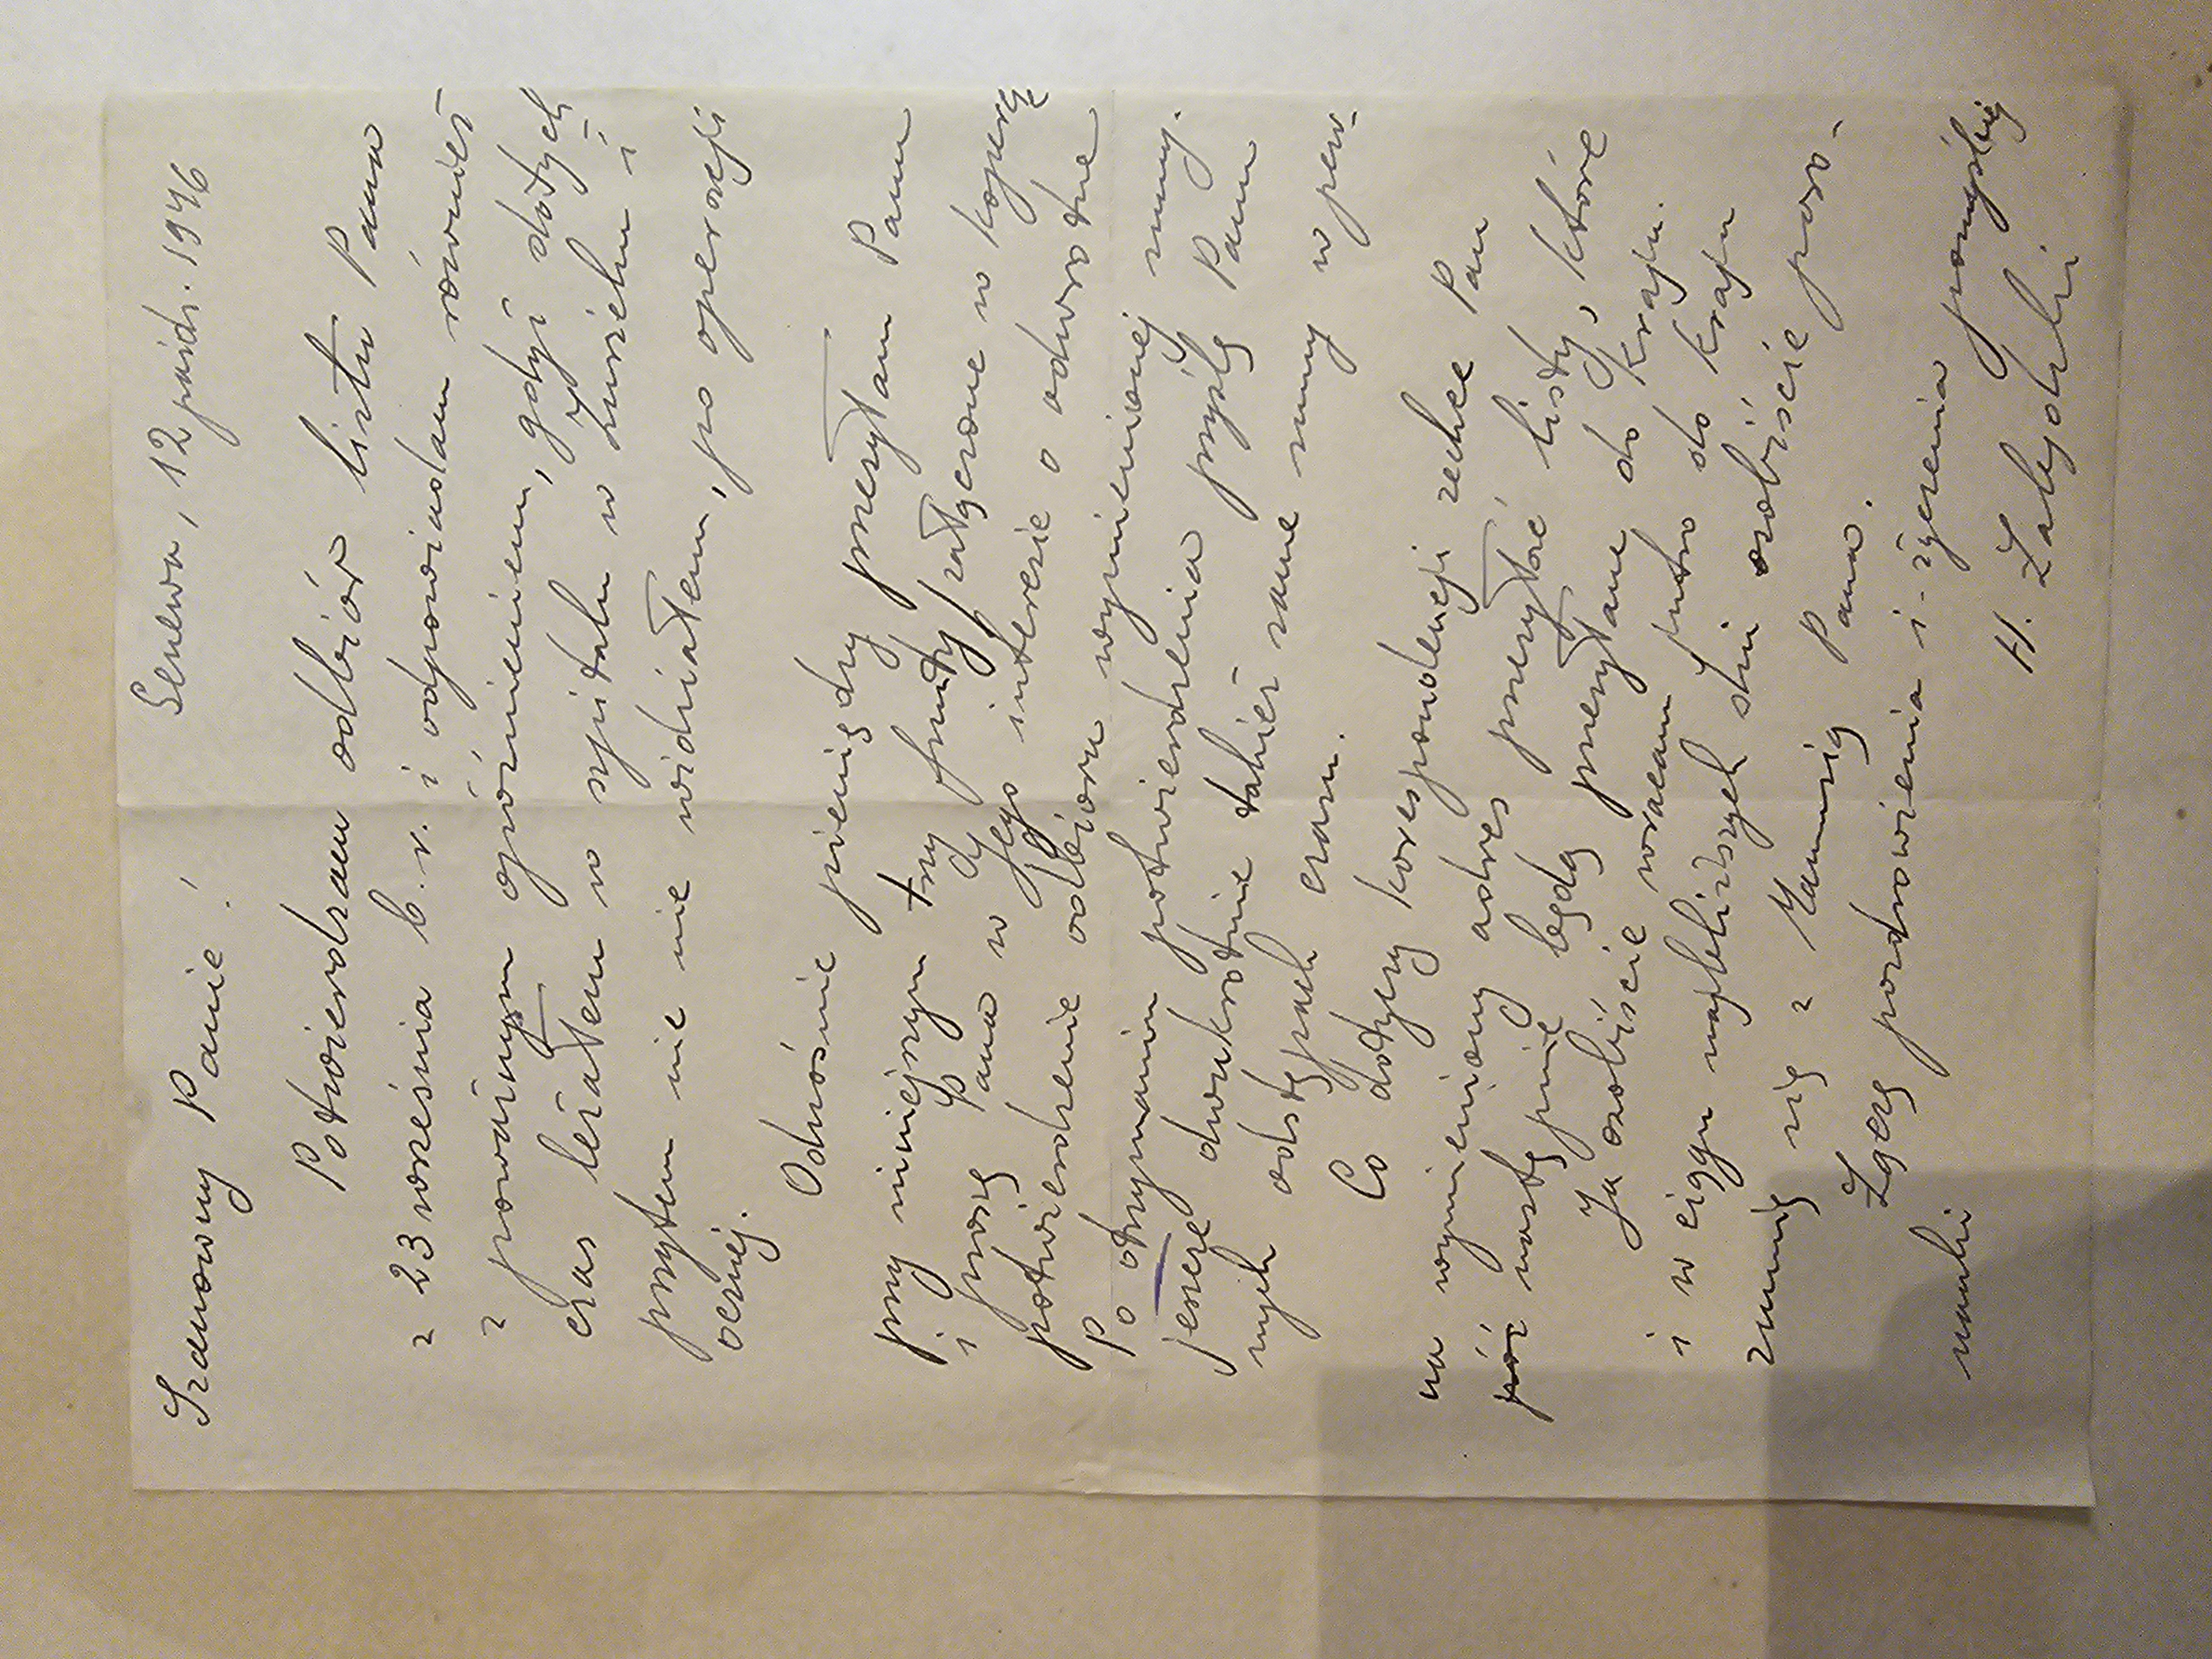 Genewa, 12 paźdz. 1946
Szanowny Panie!
Potwierdzam odbiór listu Pana
z 23 września b.r. i odpowiadam również
z poważnym opóźnieniem, gdyż dotych
czas leżałem w szpitalu w Zurichu i
przytem nic nie widziałem, po operacji
ocznej.
Odnośnie pieniędzy przesyłam Panu
przy niniejszym trzy funty/załączone w kopercie
i proszę Pana w Jego interesie o odwrotne
potwierdzenie odbioru wymienionej sumy.
Po otrzymaniu potwierdzenia prześlę Panu
jeszcze dwukrotnie takież same sumy w pew-
nych odstępach czasu.
Co dotyczy korespondencji zechce Pan
na wymieniony adres przesyłać listy, które
póź następnie będą przesyłane do Kraju.
Ja osobiście wracam jutro do Kraju
i w ciągu najbliższych dni osobiście poro-
zumię się z Mamusią Pana.
Łączę pozdrowienia i życzenia pomyślnej
nauki
H.